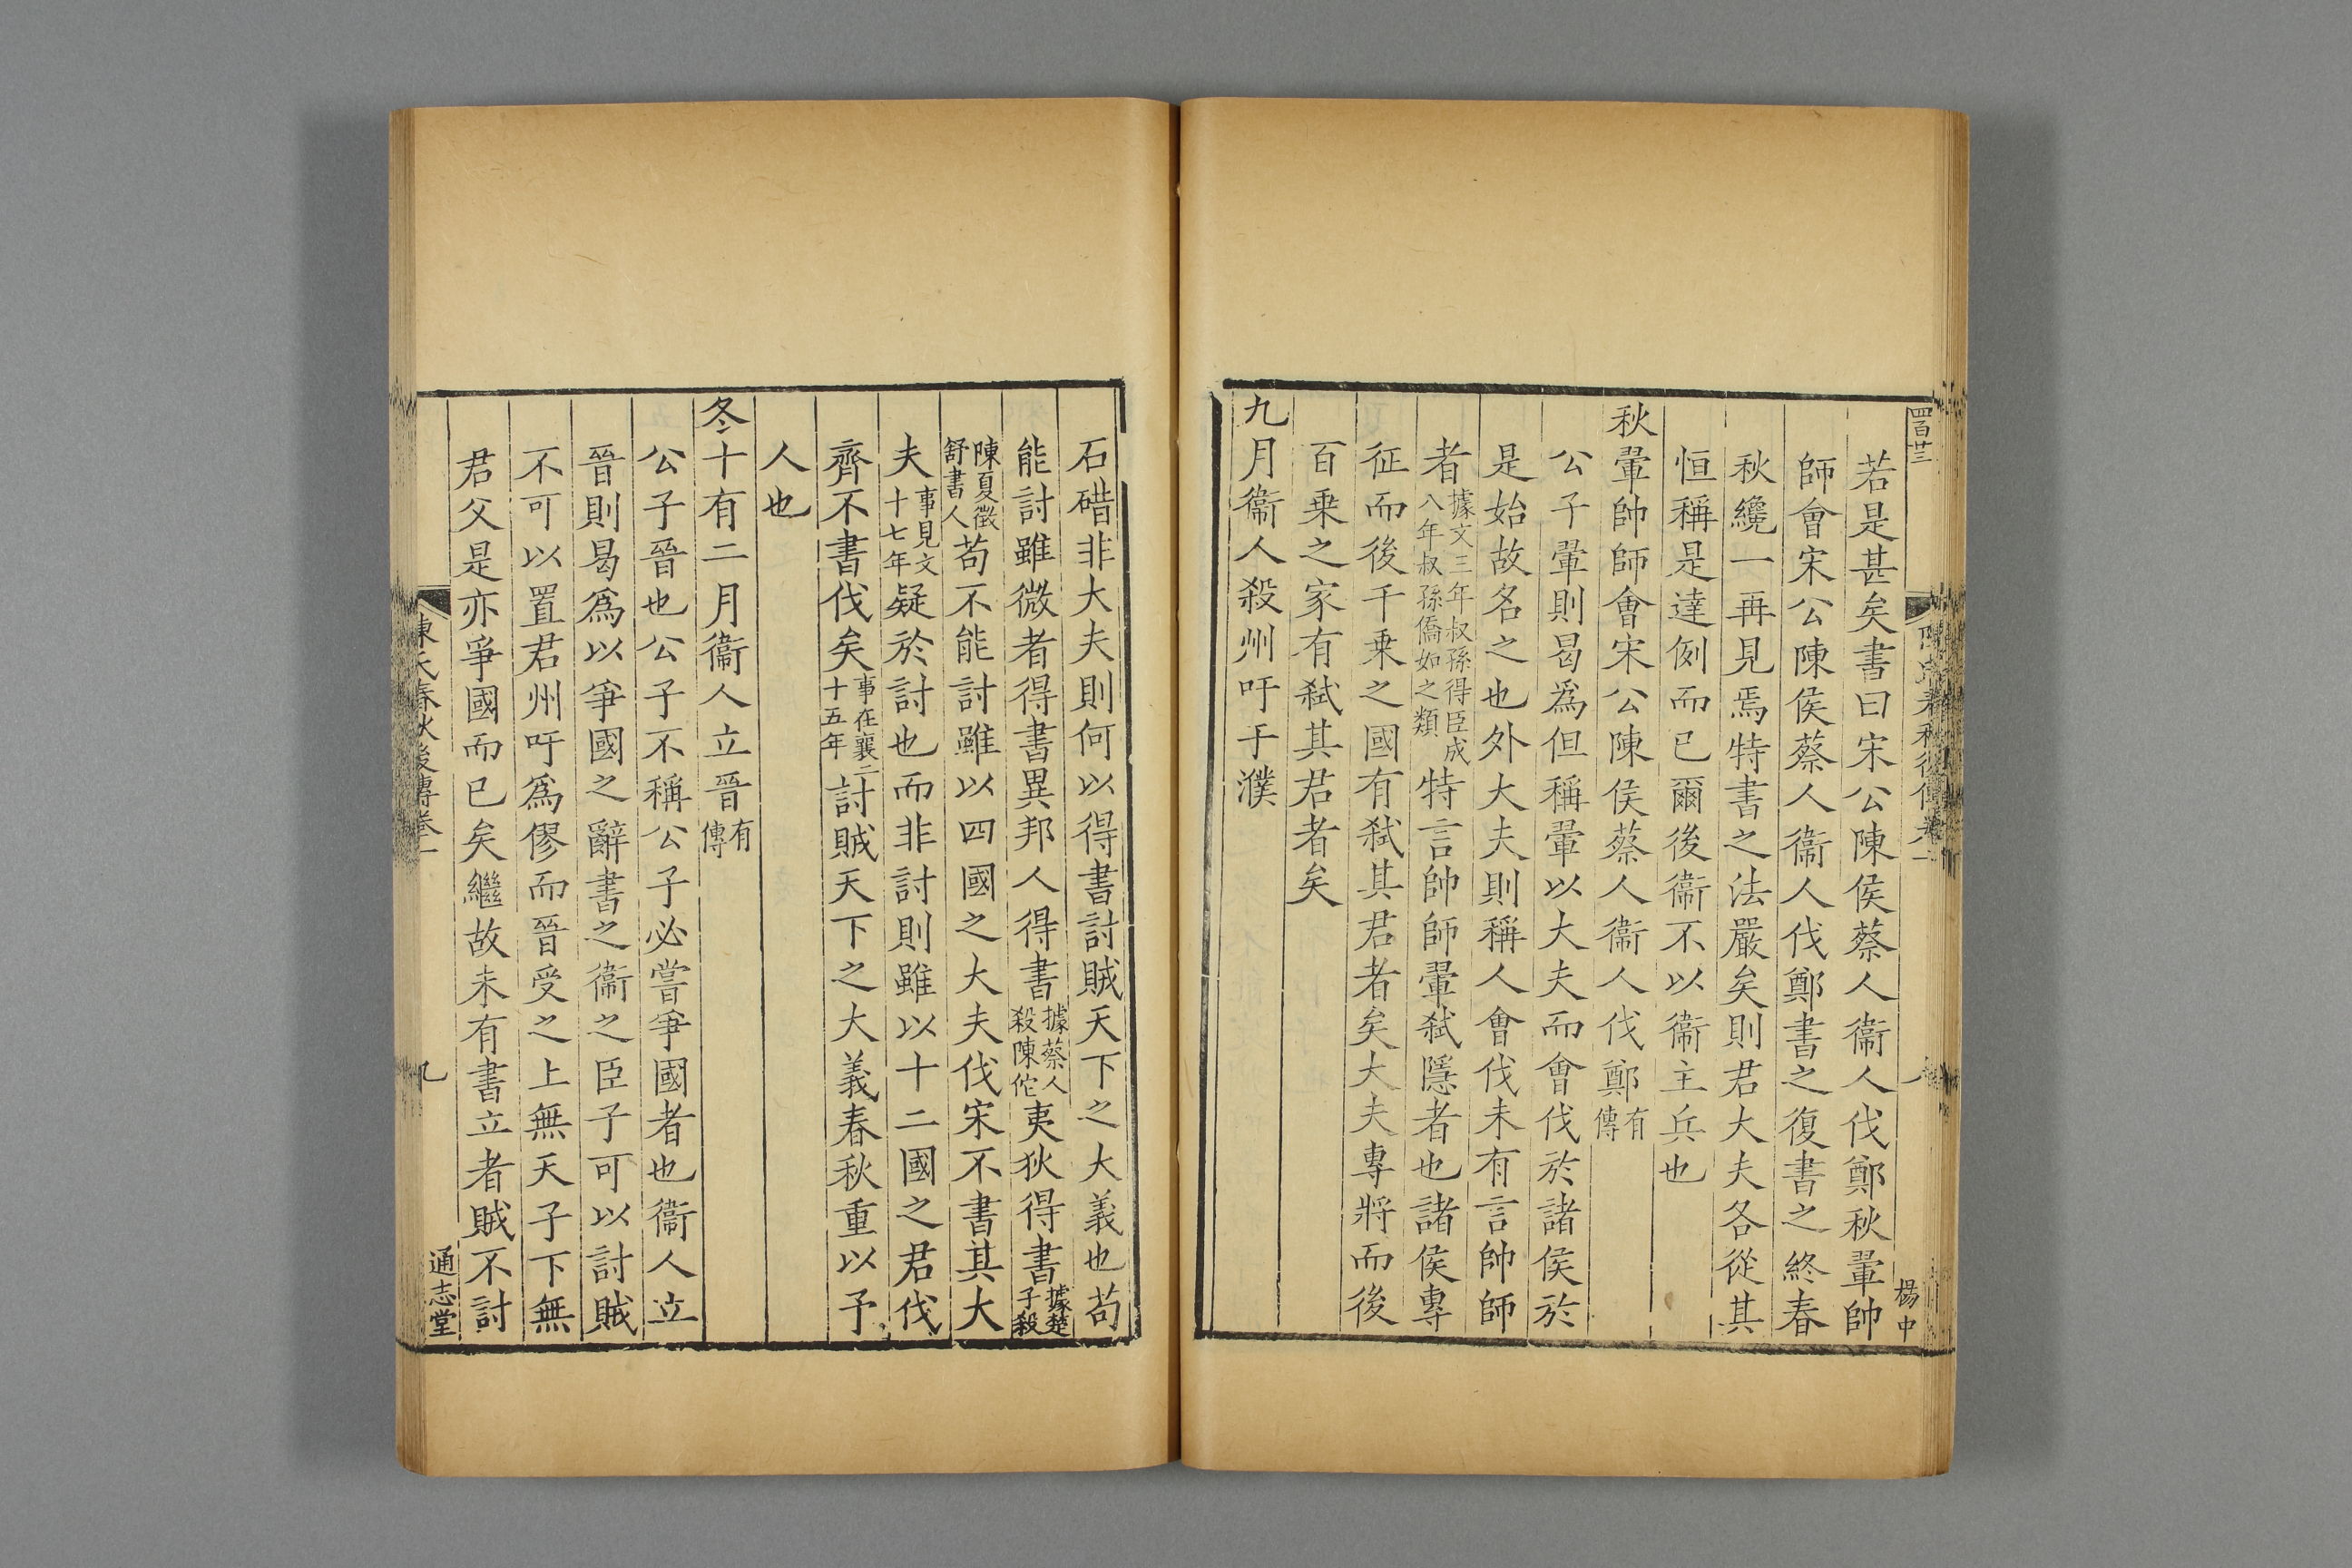 四百廿三
楊中
若是甚矣書曰宋公陳侯蔡人衞人伐鄭秋翬帥
師會宋公陳侯蔡人衞人伐鄭書之復書之終春
秋纔一再見焉特書之法嚴矣則君大夫各從其
恒稱是達例而已爾後衞不以衞主兵也
秋翬帥師會宋公陳侯蔡人衞人伐鄭有傳
公子翬則曷爲但稱翬以大夫而會伐於諸侯於
是始故名之也外大夫則稱人會伐未有言帥師
者據文三年叔孫得臣成八年叔孫僑如之類特言帥師翬弑隱者也諸侯專
征而後千乗之國有弑其君者矣大夫專將而後
百乗之家有弑其君者矣
九月衞人殺州吁于濮
石碏非大夫則何以得書討賊天下之大義也苟
能討雖微者得書異邦人得書據蔡人殺陳佗夷狄得書據楚子殺
陳夏徵舒書人苟不能討雖以四國之大夫伐宋不書其大
夫事見文十七年疑於討也而非討則雖以十二國之君伐
齊不書伐矣事在襄二十五年討賊天下之大義春秋重以予
人也
冬十有二月衞人立晉有傳
公子晉也公子不稱公子必嘗爭國者也衞人立
晉則曷爲以爭國之辭書之衞之臣子可以討賊
不可以置君州吁爲僇而晉受之上無天子下無
君父是亦爭國而已矣繼故未有書立者賊不討
陳氏春秋後傳卷一
九
通志堂